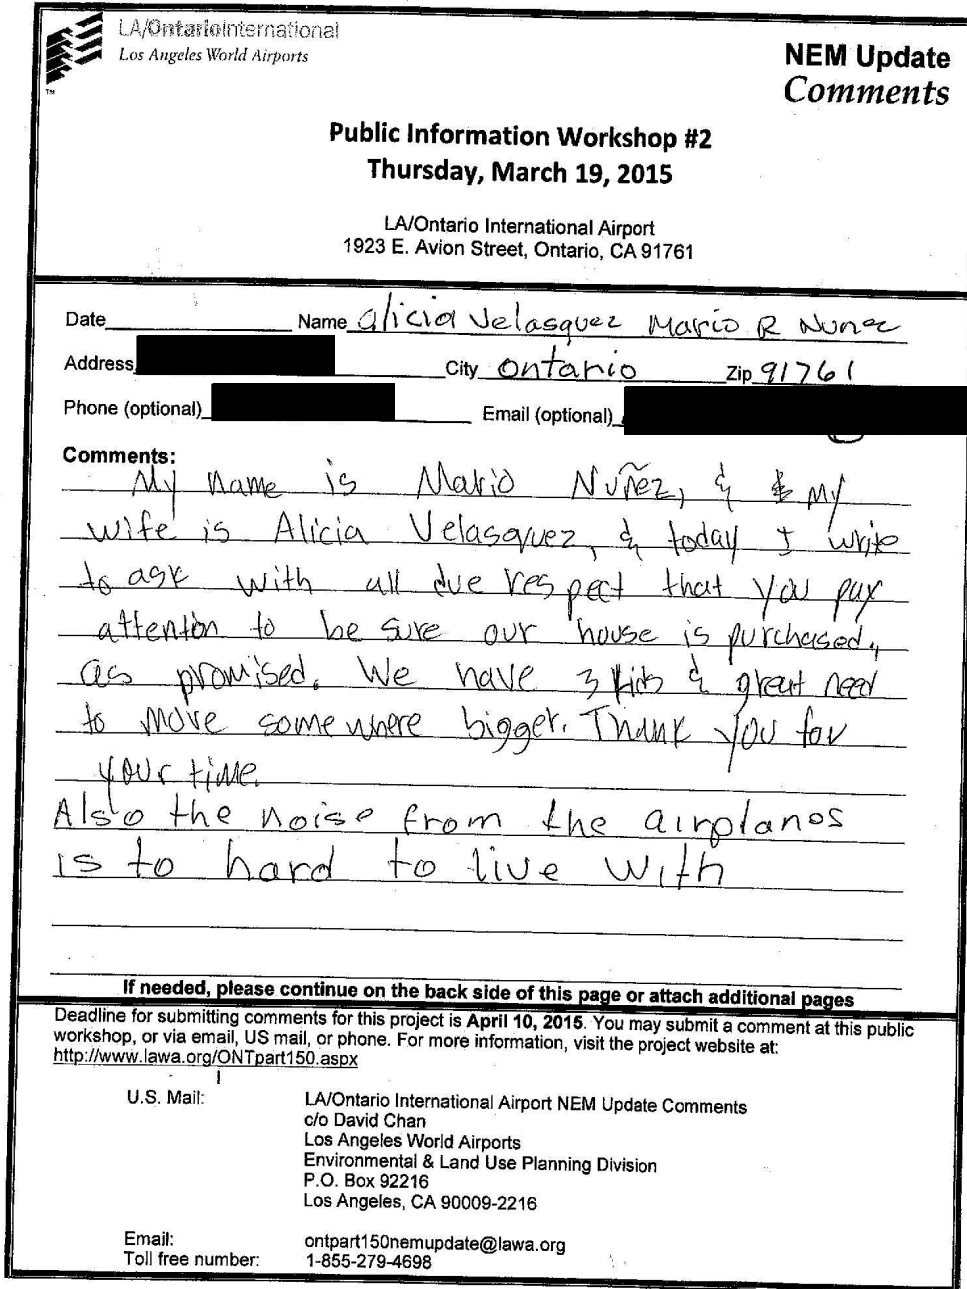 LA/OntarioInternational
Los Angeles World Airports
TM
NEM Update
Comments
Public Information Workshop #2
Thursday, March 19, 2015
LA/Ontario International Airport
1923 E. Avion Street, Ontario, CA 91761
Date Name Alicia Velasquez Mario R Nunez
Address City Ontario Zip 91761
Phone (optional) Email (optional)
Comments:
My name is Mario Nuñez, & my
wife is Alicia Velasquez, & today I write
to ask with all due respect that you pay
attention to be sure our house is purchased,
as promised. We have 3 kids & great need
to move somewhere bigger. Thank you for
your time.
Also the noise from the airplanes
is to hard to live with
If needed, please continue on the back side of this page or attach additional pages
Deadline for submitting comments for this project is April 10, 2015. You may submit a comment at this public
workshop, or via email, US mail, or phone. For more information, visit the project website at:
http://www.lawa.org/ONTpart150.aspx
U.S. Mail: LA/Ontario International Airport NEM Update Comments
c/o David Chan
Los Angeles World Airports
Environmental & Land Use Planning Division
P.O. Box 92216
Los Angeles, CA 90009-2216
Email: ontpart150nemupdate@lawa.org
Toll free number: 1-855-279-4698